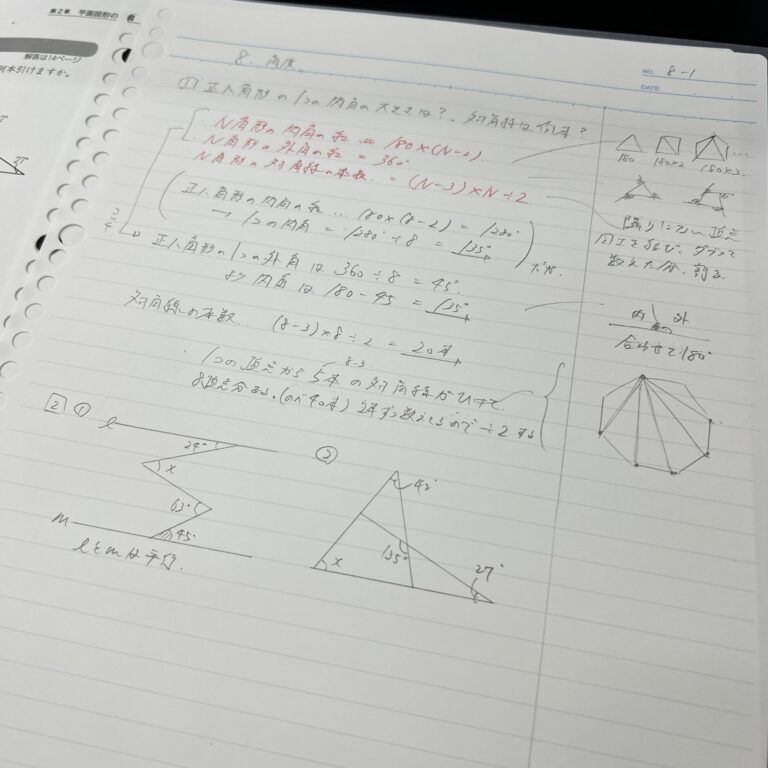 第2章 平面図形の
解答は14ページ
何本引けますか。
27°
NO. 8-1
DATE
8. 角度
1 正八角形の1つの内角の大きさは?。対角線は何本?
N角形の内角の和 = 180×(N-2).
N角形の外角の和 = 360°
N角形の対角線の本数. = (N-3)×N÷2
(正八角形の内角の和 … 180×(8-2) = 1080°
→ 1つの内角 = 1080°÷8 = 135°)
正八角形の1つの外角は 360÷8 = 45°.
内角は 180-45 = 135°
対角線の本数… (8-3)×8÷2 = 20本
8-3
1つの頂点から5本の対角線がひけて.
8頂点分ある。(のべ40本) 2本ずつ数えてるので÷2する
180
180×2
180×3
…
隣りにない頂点
同士を結び、ダブって
数えた分、割る
内 外
合わせて180°
2 ①
l
24°
x
63°
m
45°
lとmは平行.
②
42°
135°
x
27°